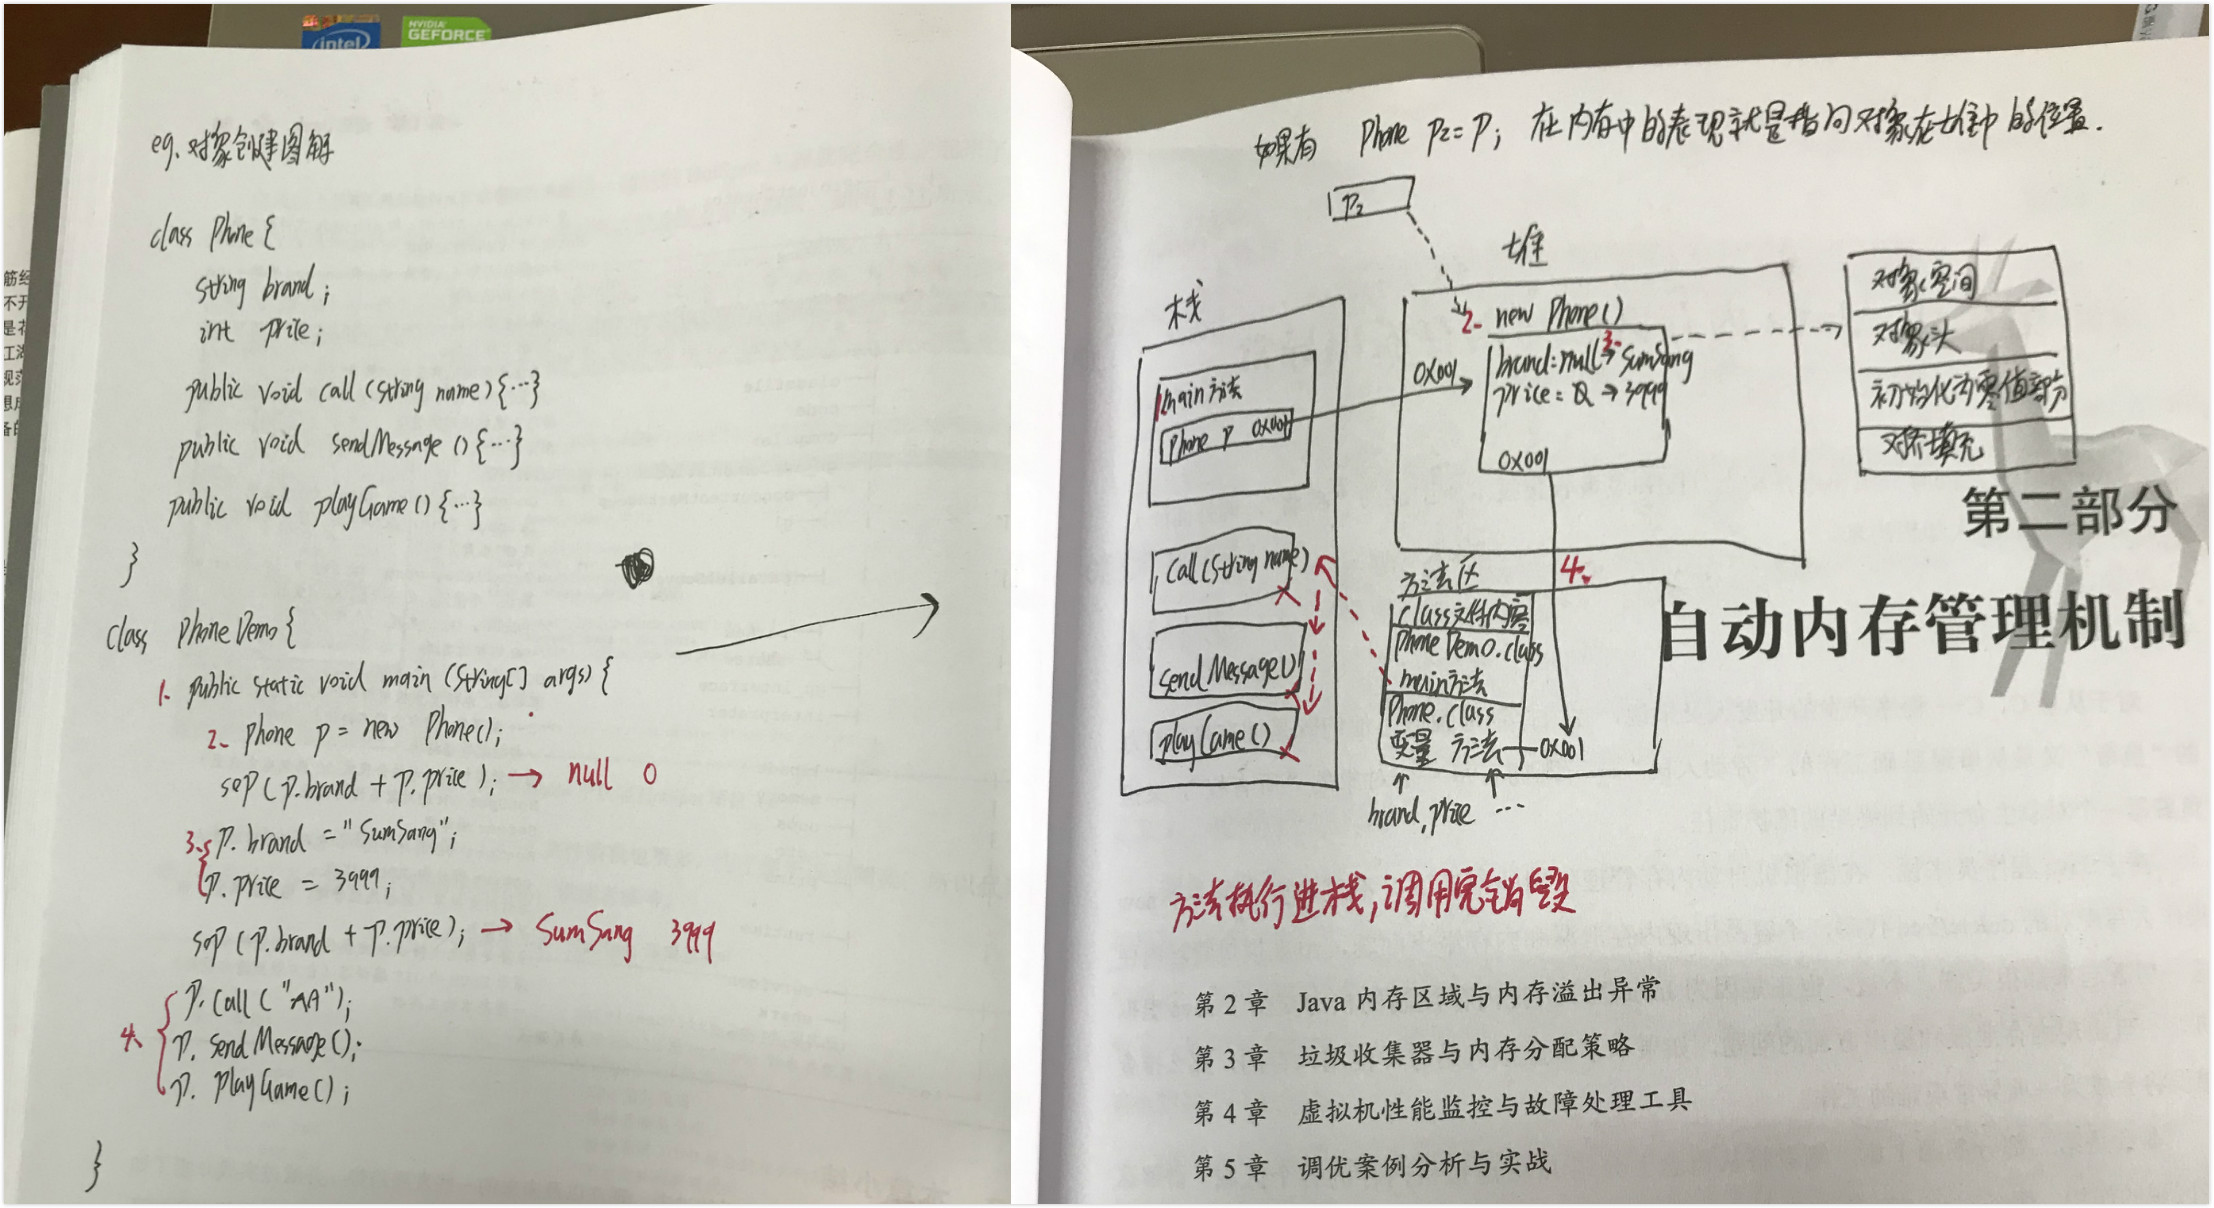 eg. 对象创建图解
class Phone {
String brand;
int price;
public void call(String name){...}
public void sendMessage(){...}
public void playGame(){...}
}
class PhoneDemo {
1. public static void main (String[] args) {
2. Phone p = new Phone();
sop(p.brand + p.price); → null 0
3. p.brand = "SumSang";
p.price = 3999;
sop(p.brand + p.price); → SumSang 3999
4. p.call("AA");
p.sendMessage();
p.playGame();
}
intel
NVIDIA
GEFORCE
如果有 Phone p2 = p; 在内存中的表现就是指向对象在堆中的位置.
P2
栈
1 main方法
Phone p 0x001
call(String name)
sendMessage()
playGame()
堆
2. new Phone()
0x001
brand = null → 3. SumSang
price = 0 → 3999
0x001
对象空间
对象头
初始化为零值部分
对齐填充
方法区
class文件内容
PhoneDemo.class
main方法
Phone.class
变量 方法 0x001
4.
brand, price ...
方法执行进栈，调用完毕出栈
第二部分
自动内存管理机制
第2章 Java内存区域与内存溢出异常
第3章 垃圾收集器与内存分配策略
第4章 虚拟机性能监控与故障处理工具
第5章 调优案例分析与实战